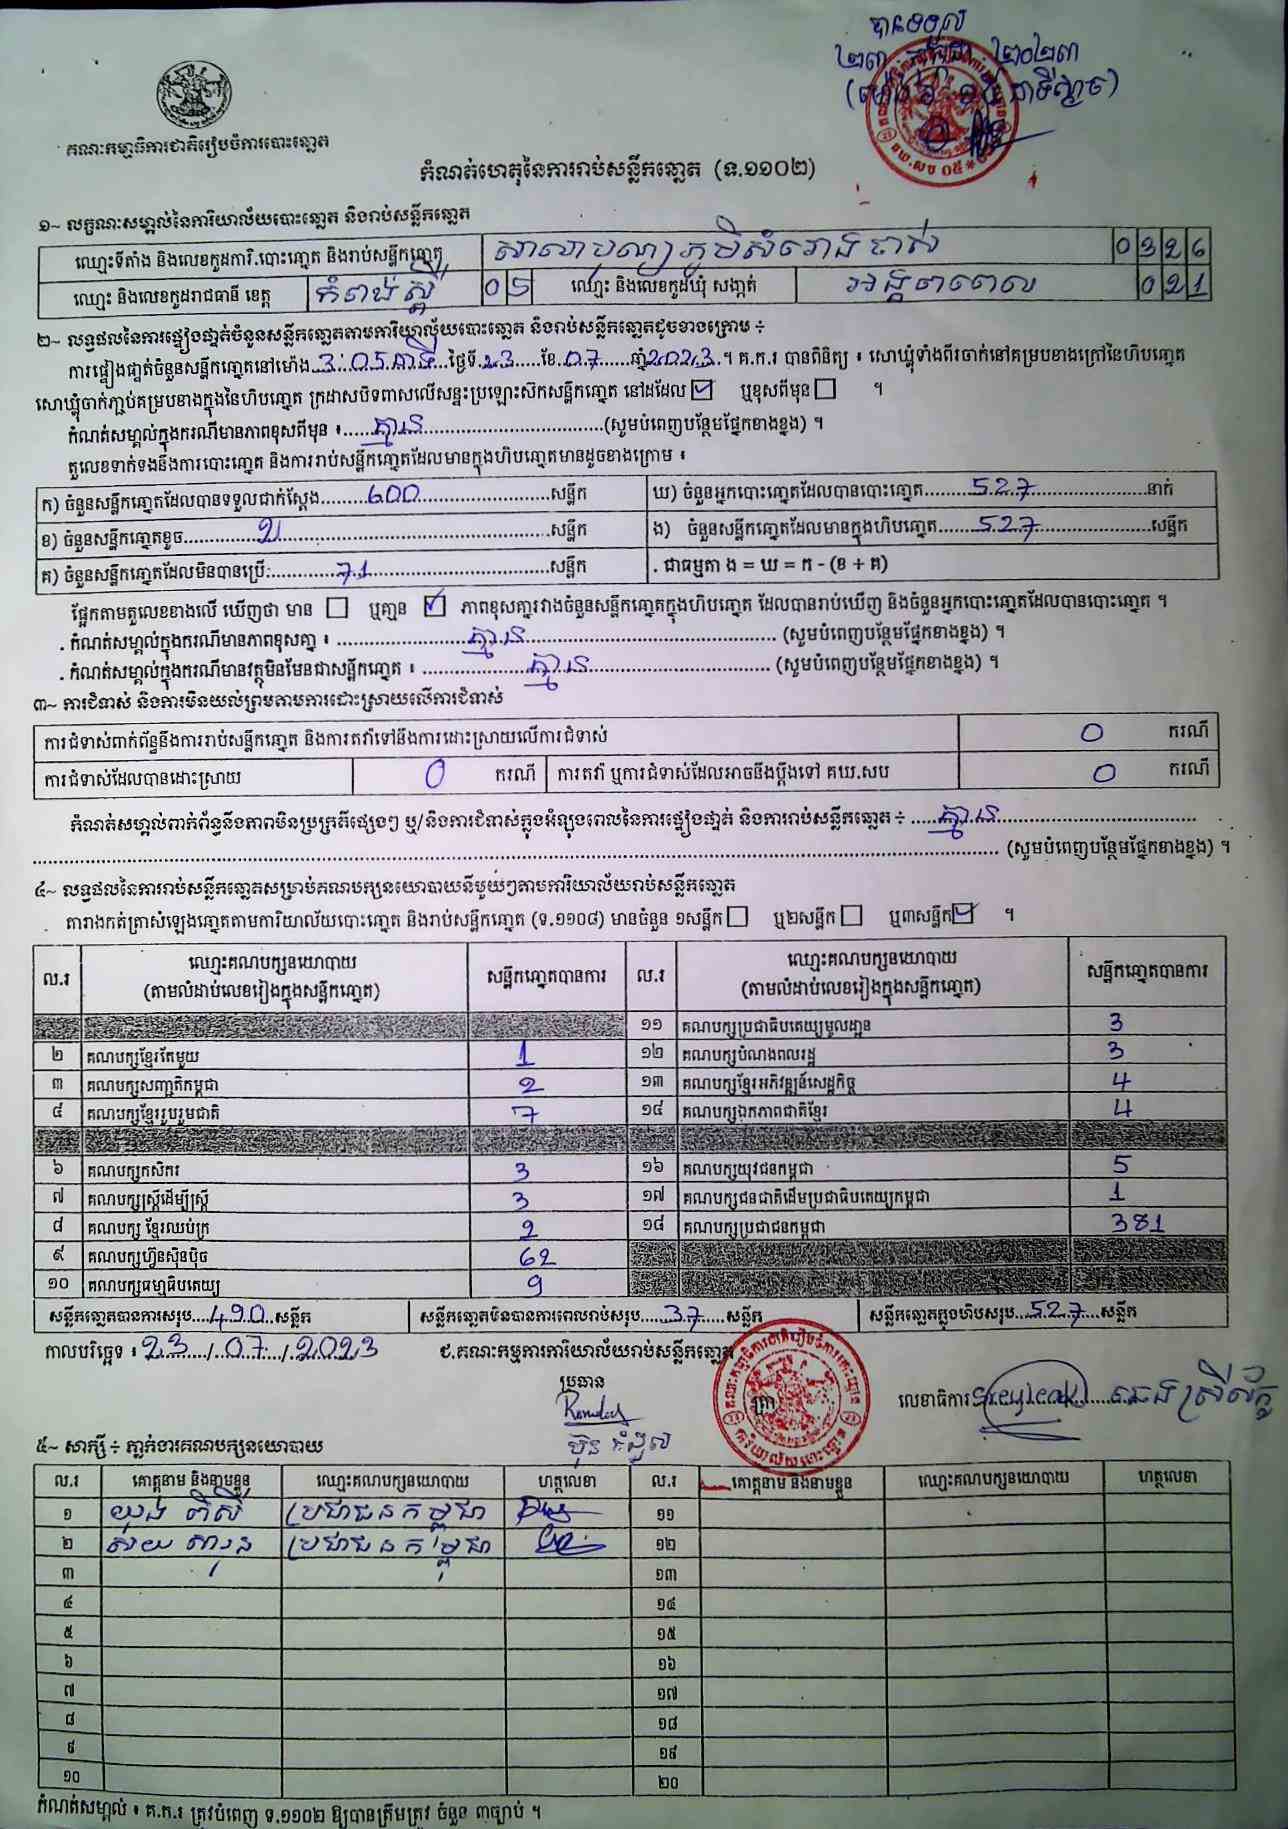 បានទទួល
២៣ កក្កដា ២០២៣
គណៈកម្មាធិការជាតិរៀបចំការបោះឆ្នោត
កំណត់ហេតុនៃការរាប់សន្លឹកឆ្នោត (ទ.១១០២)
១~ លក្ខណៈសម្គាល់នៃការិយាល័យបោះឆ្នោត និងរាប់សន្លឹកឆ្នោត
ឈ្មោះទីតាំង និងលេខកូដការិ.បោះឆ្នោត និងរាប់សន្លឹកឆ្នោត សាលាបុណ្យភូមិសំរោងចាស់ 0326
ឈ្មោះ និងលេខកូដរាជធានី ខេត្ត កំពង់ស្ពឺ 05 ឈ្មោះ និងលេខកូដឃុំ សង្កាត់ អង្គពពេល 021
២~ លទ្ធផលនៃការផ្ទៀងផ្ទាត់ចំនួនសន្លឹកឆ្នោតតាមការិយាល័យបោះឆ្នោត និងរាប់សន្លឹកឆ្នោតដូចខាងក្រោម ÷
ការផ្ទៀងផ្ទាត់ចំនួនសន្លឹកឆ្នោតនៅម៉ោង 3:05នាទី ថ្ងៃទី 23 ខែ 07 ឆ្នាំ 2023 ។ គ.ក.រ បានពិនិត្យ ៖ សោឃ្លុំទាំងពីរចាក់នៅគម្របខាងក្រៅនៃហិបឆ្នោត
សោឃ្លុំចាក់ភ្ជាប់គម្របខាងក្នុងនៃហិបឆ្នោត ក្រដាសបិទពាសលើសន្ទះប្រឡោះស៊កសន្លឹកឆ្នោត នៅដដែល ☑ ឬខុសពីមុន ☐ ។
កំណត់សម្គាល់ក្នុងករណីមានភាពខុសពីមុន ៖ គ្មាន (សូមបំពេញបន្ថែមផ្នែកខាងខ្នង) ។
តួលេខទាក់ទងនឹងការបោះឆ្នោត និងការរាប់សន្លឹកឆ្នោតដែលមានក្នុងហិបឆ្នោតមានដូចខាងក្រោម ៖
ក) ចំនួនសន្លឹកឆ្នោតដែលបានទទួលជាក់ស្តែង 600 សន្លឹក ឃ) ចំនួនអ្នកបោះឆ្នោតដែលបានបោះឆ្នោត 527 នាក់
ខ) ចំនួនសន្លឹកឆ្នោតខូច 2 សន្លឹក ង) ចំនួនសន្លឹកឆ្នោតដែលមានក្នុងហិបឆ្នោត 527 សន្លឹក
គ) ចំនួនសន្លឹកឆ្នោតដែលមិនបានប្រើ: 71 សន្លឹក . ជាធម្មតា ង = ឃ = ក - (ខ + គ)
ផ្អែកតាមតួលេខខាងលើ ឃើញថា មាន ☐ ឬគ្មាន ☑ ភាពខុសគ្នារវាងចំនួនសន្លឹកឆ្នោតក្នុងហិបឆ្នោត ដែលបានរាប់ឃើញ និងចំនួនអ្នកបោះឆ្នោតដែលបានបោះឆ្នោត ។
. កំណត់សម្គាល់ក្នុងករណីមានភាពខុសគ្នា ៖ គ្មាន (សូមបំពេញបន្ថែមផ្នែកខាងខ្នង) ។
. កំណត់សម្គាល់ក្នុងករណីមានវត្ថុមិនមែនជាសន្លឹកឆ្នោត ៖ គ្មាន (សូមបំពេញបន្ថែមផ្នែកខាងខ្នង) ។
៣~ ការជំទាស់ និងការមិនយល់ព្រមតាមការដោះស្រាយលើការជំទាស់
ការជំទាស់ពាក់ព័ន្ធនឹងការរាប់សន្លឹកឆ្នោត និងការតវ៉ាទៅនឹងការដោះស្រាយលើការជំទាស់ 0 ករណី
ការជំទាស់ដែលបានដោះស្រាយ 0 ករណី ការតវ៉ា ឬការជំទាស់ដែលអាចនឹងប្តឹងទៅ គឃ.សប 0 ករណី
កំណត់សម្គាល់ពាក់ព័ន្ធនឹងភាពមិនប្រក្រតីផ្សេងៗ ឬ/និងការជំទាស់ក្នុងអំឡុងពេលនៃការផ្ទៀងផ្ទាត់ និងការរាប់សន្លឹកឆ្នោត ÷ គ្មាន
(សូមបំពេញបន្ថែមផ្នែកខាងខ្នង) ។
៤~ លទ្ធផលនៃការរាប់សន្លឹកឆ្នោតសម្រាប់គណបក្សនយោបាយនីមួយៗតាមការិយាល័យរាប់សន្លឹកឆ្នោត
តារាងកត់ត្រាសំឡេងឆ្នោតតាមការិយាល័យបោះឆ្នោត និងរាប់សន្លឹកឆ្នោត (ទ.១១០៨) មានចំនួន ១សន្លឹក ☐ ឬ២សន្លឹក ☐ ឬ៣សន្លឹក ☑ ។
ល.រ ឈ្មោះគណបក្សនយោបាយ (តាមលំដាប់លេខរៀងក្នុងសន្លឹកឆ្នោត) សន្លឹកឆ្នោតបានការ ល.រ ឈ្មោះគណបក្សនយោបាយ (តាមលំដាប់លេខរៀងក្នុងសន្លឹកឆ្នោត) សន្លឹកឆ្នោតបានការ
១១ គណបក្សប្រជាធិបតេយ្យមូលដ្ឋាន 3
២ គណបក្សខ្មែរតែមួយ 1 ១២ គណបក្សបំណងពលរដ្ឋ 3
៣ គណបក្សសញ្ជាតិកម្ពុជា 2 ១៣ គណបក្សខ្មែរអភិវឌ្ឍន៍សេដ្ឋកិច្ច 4
៤ គណបក្សខ្មែររួបរួមជាតិ 7 ១៤ គណបក្សឯកភាពជាតិខ្មែរ 4
៦ គណបក្សកសិករ 3 ១៦ គណបក្សយុវជនកម្ពុជា 5
៧ គណបក្សស្ត្រីដើម្បីស្ត្រី 3 ១៧ គណបក្សជនជាតិដើមប្រជាធិបតេយ្យកម្ពុជា 1
៨ គណបក្ស ខ្មែរឈប់ក្រ 2 ១៨ គណបក្សប្រជាជនកម្ពុជា 381
៩ គណបក្សហ៊្វុនស៊ិនប៉ិច 62
១០ គណបក្សធម្មាធិបតេយ្យ 9
សន្លឹកឆ្នោតបានការសរុប 490 សន្លឹក សន្លឹកឆ្នោតមិនបានការពេលរាប់សរុប 37 សន្លឹក សន្លឹកឆ្នោតក្នុងហិបសរុប 527 សន្លឹក
កាលបរិច្ឆេទ ៖ 23/07/2023 ជ.គណៈកម្មការការិយាល័យរាប់សន្លឹកឆ្នោត
ប្រធាន
លេខាធិការ
៥~ សាក្សី ÷ ភ្នាក់ងារគណបក្សនយោបាយ
ល.រ គោត្តនាម និងនាមខ្លួន ឈ្មោះគណបក្សនយោបាយ ហត្ថលេខា ល.រ គោត្តនាម និងនាមខ្លួន ឈ្មោះគណបក្សនយោបាយ ហត្ថលេខា
១ យុង ពិសី ប្រជាជនកម្ពុជា ១១
២ ប្រជាជនកម្ពុជា ១២
៣ ១៣
៤ ១៤
៥ ១៥
៦ ១៦
៧ ១៧
៨ ១៨
៩ ១៩
១០ ២០
កំណត់សម្គាល់ ៖ គ.ក.រ ត្រូវបំពេញ ទ.១១០២ ឱ្យបានត្រឹមត្រូវ ចំនួន ៣ច្បាប់ ។